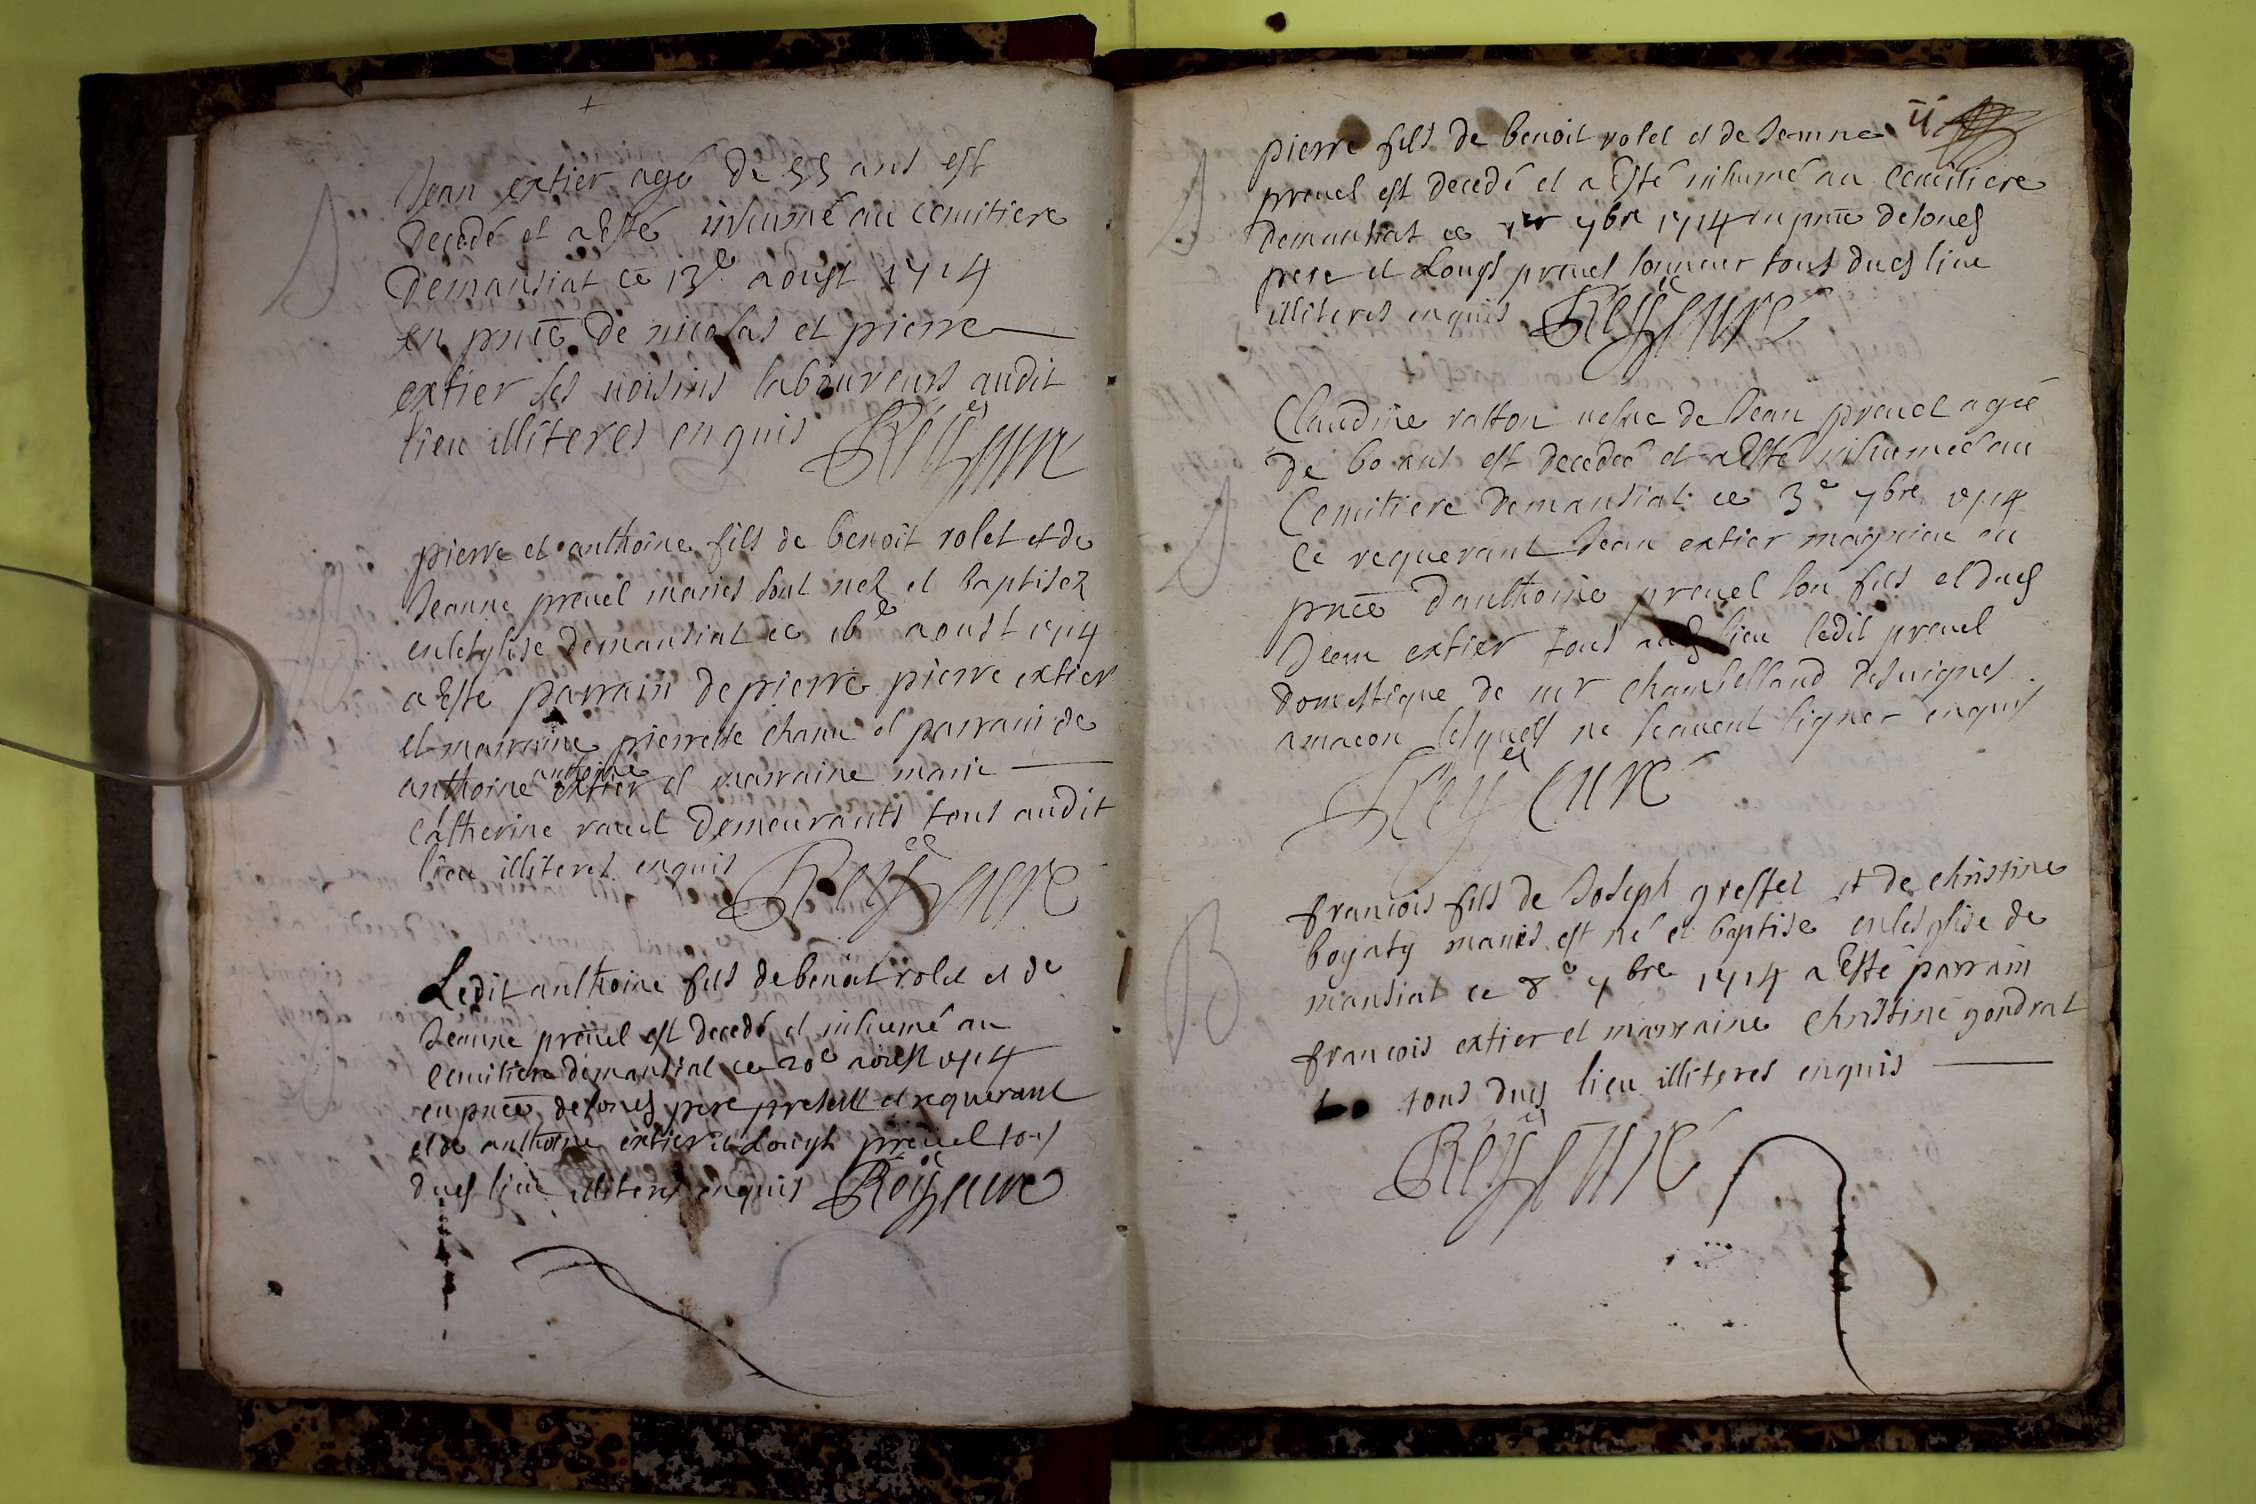 Jean extier agé de 55 ans est
decedé et a Esté inhumé au cemitiere
demansiat ce 13e aoust 1714
en pnce de nicolas et pierre
extier ses uoisins laboureurs audit
lieu illiteres enquis Rey curé
pierre et anthoine fils de benoit rolet et de
Jeanne preuel mariés sont nez et baptisez
en lesglise demansiat ce 16e aoust 1714
a Esté parrain de pierre pierre extier
et marraine pierrette chanu et parrain de
anthoine anthoine extier et marraine marie
catherine rauel demeurants tous audit
lieu illiteres enquis Rey curé
Ledit anthoine fils de benoit rolet et de
Jeanne preuel est decedé et inhumé au
cemitiere demansiat ce 20e aoust 1714
en pnce de son pere present et requerant
et de anthoine extier et Louys preuel tous
dud lieu illiteres enquis Rey curé
ii
pierre fils de benoit rolet et de Jeanne
preuel est decedé et a Esté inhumé au cemitiere
demansiat ce 1er 7bre 1714 en pnce de son
pere et Louys preuel tous dud lieu
illiteres enquis Rey curé
Claudine ratton uesue de Jean preuel agée
de 60 ans est decedée et a Esté inhumée au
Cemitiere demansiat ce 3e 7bre 1714
ce requerant Jean extier en
pnce danthoine preuel son fils et dud
Jean extier tous dud lieu ledit preuel
domestique de mr chambelland desuignes
a macon lesquels ne scauent signer enquis
Rey curé
D
D
B
francois fils de Joseph greffet et de christine
boyaty mariés est né et baptisé en lesglise de
mansiat ce 8e 7bre 1714 a Esté parrain
francois extier et marraine christine gondrat
tous dud lieu illiteres enquis
Rey curé